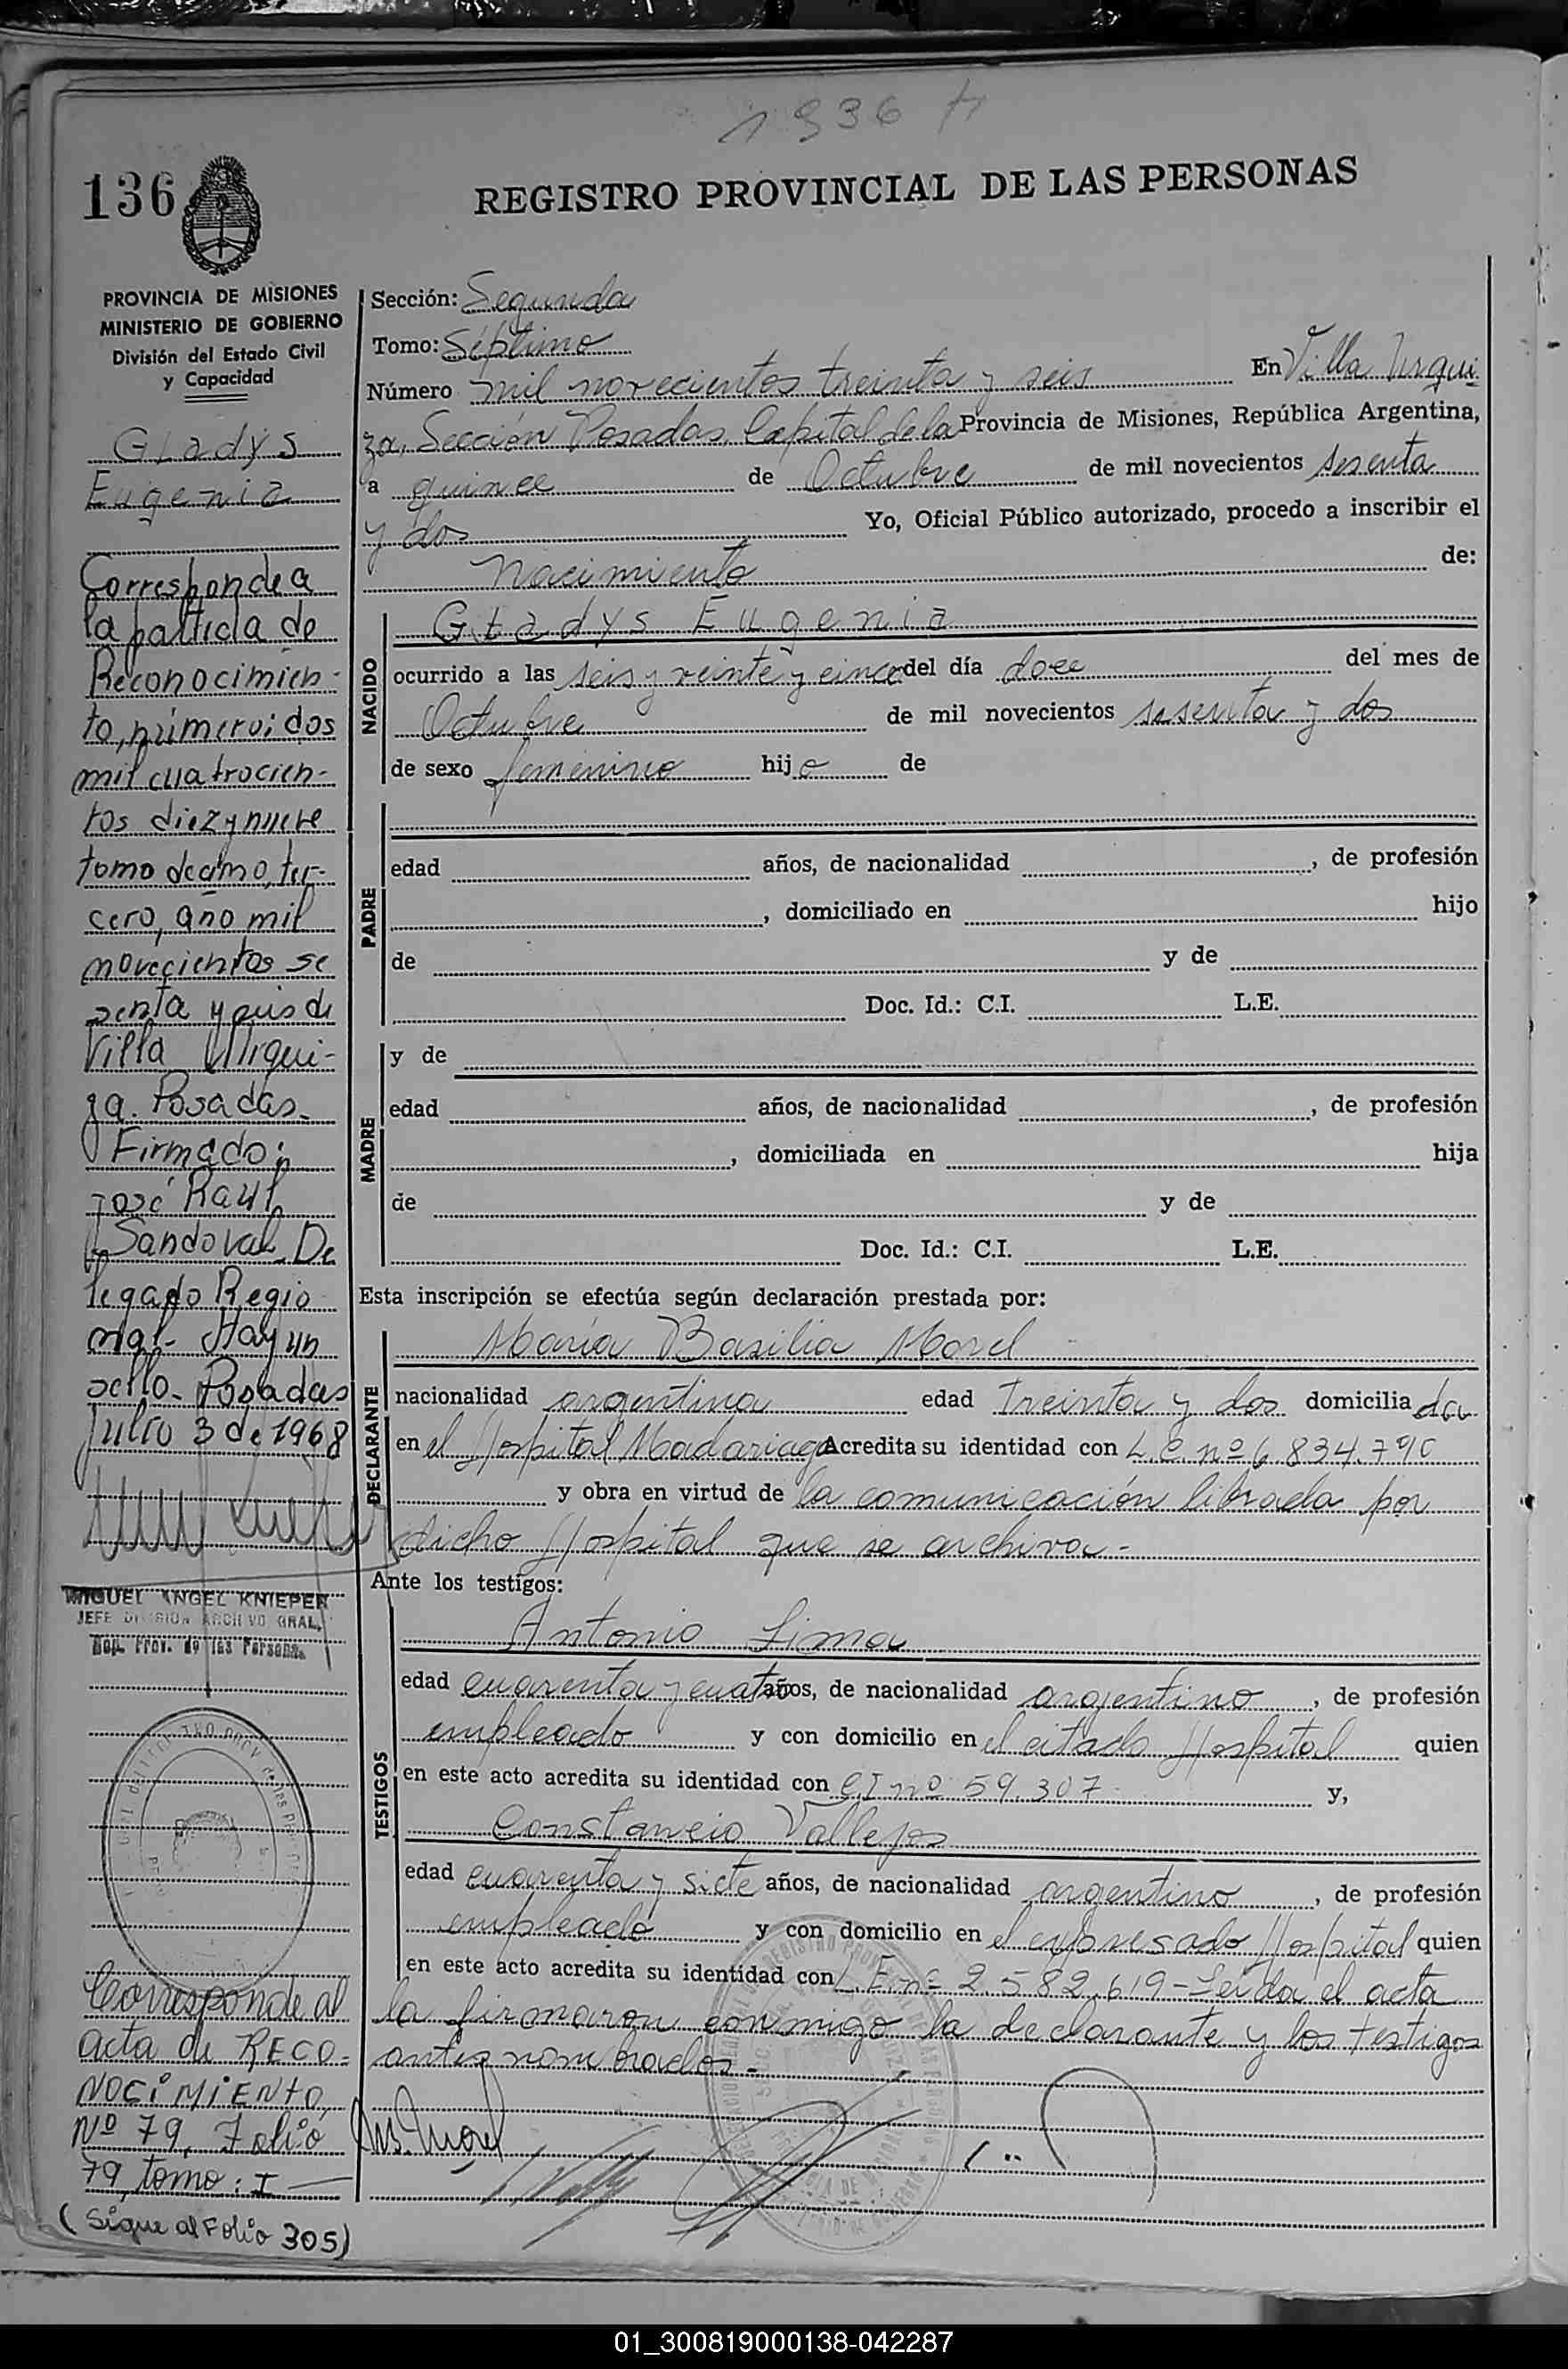 1936 H
136
REGISTRO PROVINCIAL DE LAS PERSONAS
PROVINCIA DE MISIONES
MINISTERIO DE GOBIERNO
División del Estado Civil
y Capacidad
Gladys
Eugenia
Corresponde a
la partida de
Reconocimien-
to, número: dos
mil cuatrocien-
tos diez y nueve
tomo decimo, ter-
cero, año mil
novecientos se
senta y seis de
Villa Urqui-
za. Posadas.
Firmado:
José Raúl
Sandoval De
legado Regio
nal. Hay un
sello. Posadas
Julio 3 de 1968
MIGUEL ANGEL KNIEPER
JEFE DIVISION ARCHIVO GRAL.
Reg. Prov. de las Personas
Corresponde al
acta de RECO-
NOCIMIENTO,
Nº 79, Folio
79, tomo: I
(Sigue al Folio 305)
Sección: Segunda
Tomo: Séptimo
Número mil novecientos treinta y seis En Villa Urqui
za, Sección Posadas, Capital de la Provincia de Misiones, República Argentina,
a quince de Octubre de mil novecientos sesenta
y dos Yo, Oficial Público autorizado, procedo a inscribir el
Nacimiento de:
NACIDO
Gladys Eugenia
ocurrido a las seis y veinte y cinco del día doce del mes de
Octubre de mil novecientos sesenta y dos
de sexo femenino hija de
PADRE
edad años, de nacionalidad , de profesión
, domiciliado en hijo
de y de
Doc. Id.: C.I. L.E.
MADRE
y de
edad años, de nacionalidad , de profesión
, domiciliada en hija
de y de
Doc. Id.: C.I. L.E.
Esta inscripción se efectúa según declaración prestada por:
DECLARANTE
María Basilia Morel
nacionalidad argentina edad treinta y dos domiciliada
en el Hospital Madariaga Acredita su identidad con L.C. nº 6.834.790
y obra en virtud de la comunicación librada por
dicho Hospital que se archiva.-
Ante los testigos:
TESTIGOS
Antonio Lima
edad cuarenta y cuatro años, de nacionalidad argentino, de profesión
empleado y con domicilio en el citado Hospital quien
en este acto acredita su identidad con C.I nº 59.307 y,
Constancio Vallejos
edad cuarenta y siete años, de nacionalidad argentino, de profesión
empleado y con domicilio en el expresado Hospital quien
en este acto acredita su identidad con L.E. nº 2.582.619 - Leída el acta
la firmaron conmigo la declarante y los testigos
antes nombrados.-
M.B. Morel
01_300819000138-042287